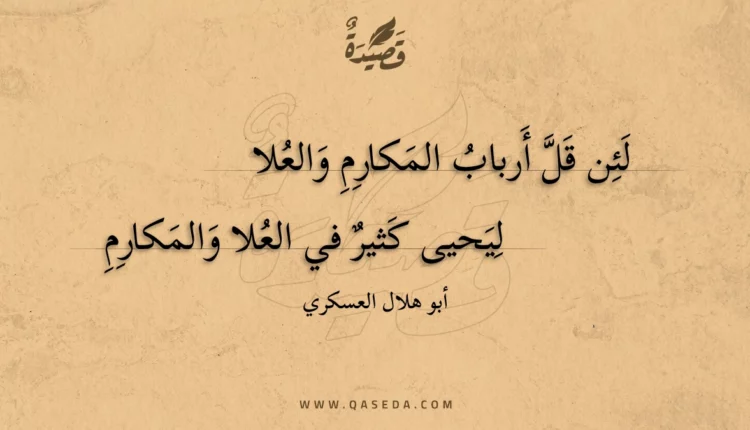 قَصِيدَةٌ
لَئِن قَلَّ أَربابُ المَكارِمِ وَالعُلا
لِيَحيى كَثيرٌ في العُلا وَالمَكارِمِ
أبو هلال العسكري
WWW.QASEDA.COM